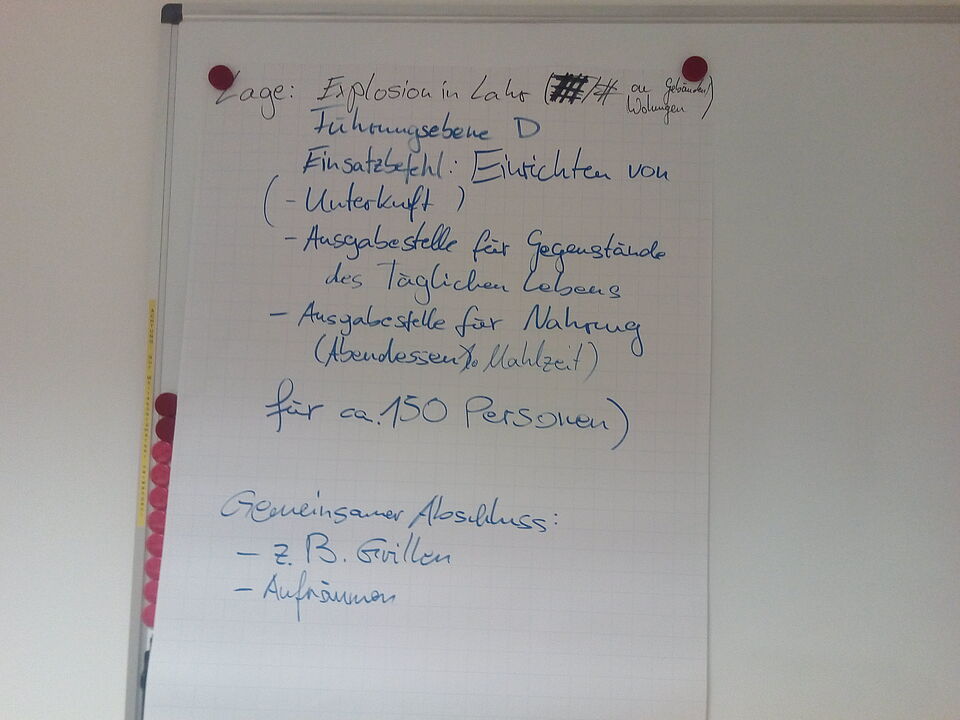 Lage: Explosion in Lahr ( # an Gebäuden/
Wohungen )
Führungsebene D
Einsatzbefehl: Einrichten von
( - Unterkunft )
- Ausgabestelle für Gegenstände
des Täglichen Lebens
- Ausgabestelle für Nahrung
(Abendessen Mahlzeit)
für ca. 150 Personen)
Gemeinsamer Abschluss:
- z. B. Grillen
- Aufräumen